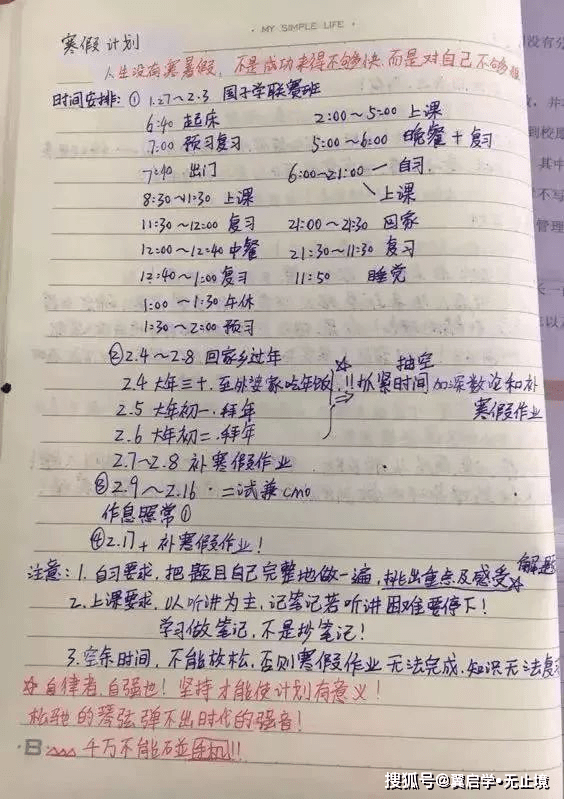 · MY SIMPLE LIFE ·
寒假计划
人生没有寒暑假，不是成功来得不够快，而是对自己不够狠
时间安排：① 1.27～2.3 国子学联赛班
6:40 起床 2:00～5:00 上课
7:00 预习复习 5:00～6:00 晚餐+复习
7:40 出门 6:00～21:00 — 自习
8:30～11:30 上课 上课
11:30～12:00 复习 21:00～21:30 回家
12:00～12:40 中餐 21:30～11:30 复习
12:40～1:00 复习 11:50 睡觉
1:00～1:30 午休
1:30～2:00 预习
② 2.4～2.8 回家乡过年 ☆ 抽空
2.4 大年三十，至外婆家吃年饭 !! 抓紧时间加深数论和补
2.5 大年初一，拜年 ⇒ 寒假作业
2.6 大年初二，拜年
2.7～2.8 补寒假作业
③ 2.9～2.16 · 二试兼cmo
作息照常①
④ 2.17+ 补寒假作业！
注意：1. 自习要求，把题目自己完整地做一遍，挑出重点及感受☆ 解题
2. 上课要求，以听讲为主，记笔记若听讲困难要停下！
学习做笔记，不是抄笔记！
3. 空余时间，不能放松，否则寒假作业无法完成，知识无法复
☆ 自律者，自强也！坚持才能使计划有意义！
松弛的琴弦弹不出时代的强音！
千万不能碰手机!!
搜狐号@翼启学•无止境